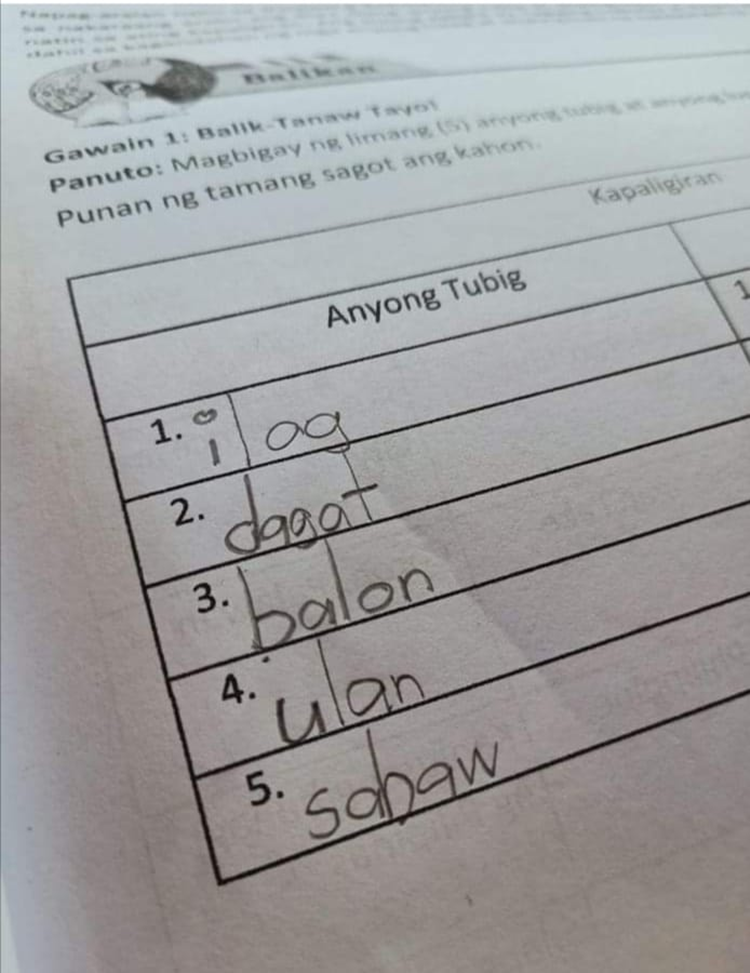 Balikan
Gawain 1: Balik-Tanaw Tayo!
Panuto: Magbigay ng limang (5) anyong tubig at anyong
Punan ng tamang sagot ang kahon.
Kapaligiran
Anyong Tubig
1
1. ilog
2. dagat
3. balon
4. ulan
5. sabaw